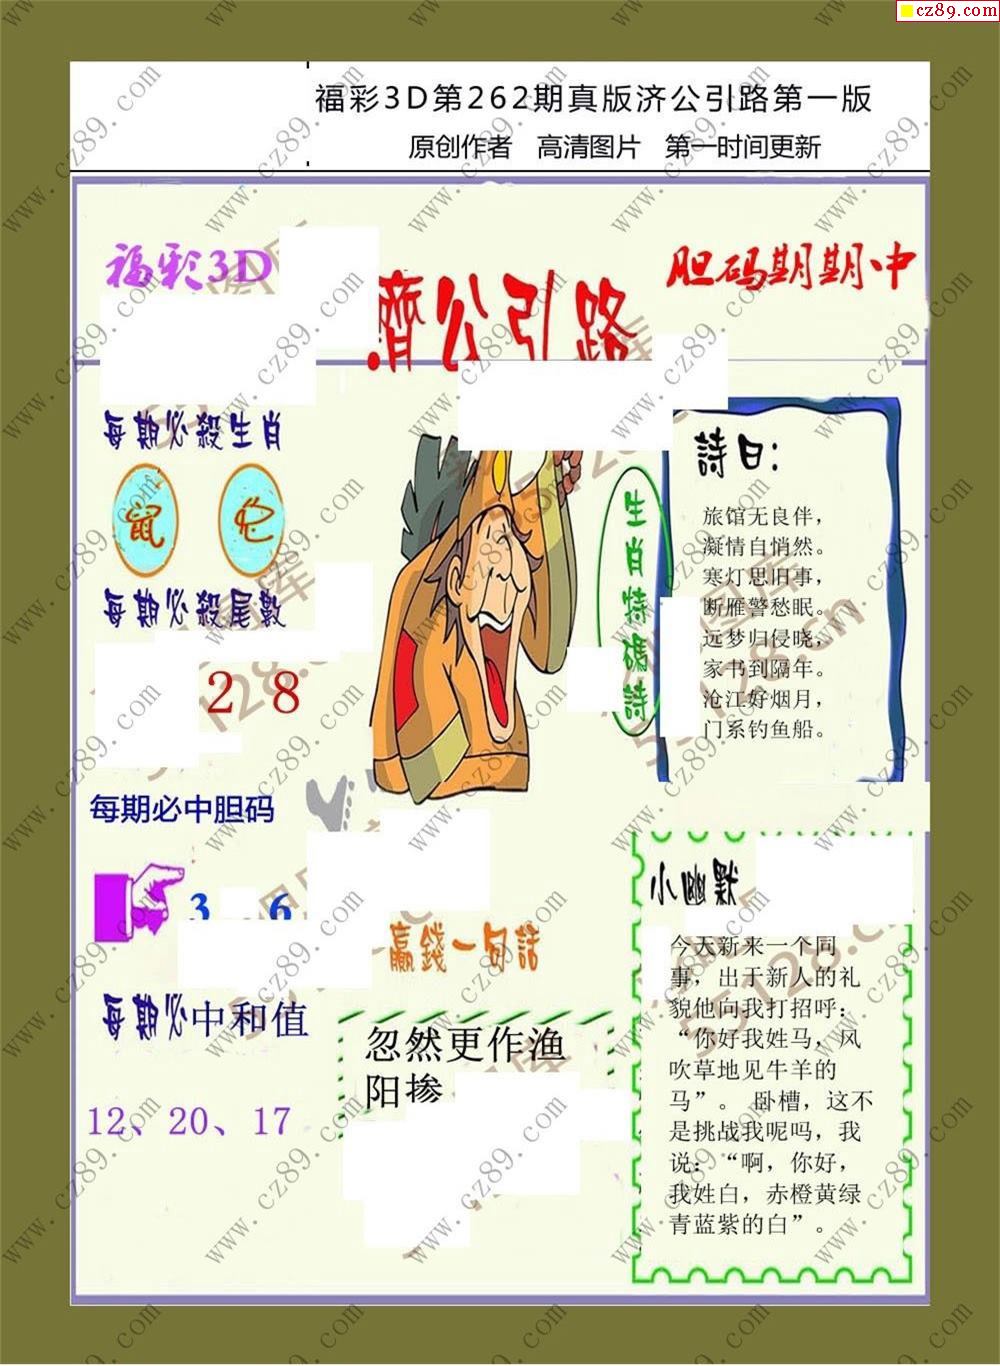 cz89.com
福彩3D第262期真版济公引路第一版
原创作者 高清图片 第一时间更新
福彩3D
濟公引路
胆码期期中
每期必殺生肖
鼠 蛇
每期必殺尾數
2 8
每期必中胆码
3 6
每期必中和值
12、20、17
生肖特碼詩
詩曰：
旅馆无良伴，
凝情自悄然。
寒灯思旧事，
断雁警愁眠。
远梦归侵晓，
家书到隔年。
沧江好烟月，
门系钓鱼船。
贏錢一句話
忽然更作渔
阳掺
小幽默
今天新来一个同
事，出于新人的礼
貌他向我打招呼：
“你好我姓马，风
吹草地见牛羊的
马”。 卧槽，这不
是挑战我呢吗，我
说：“啊，你好，
我姓白，赤橙黄绿
青蓝紫的白”。
www.cz89.com
55128.cn